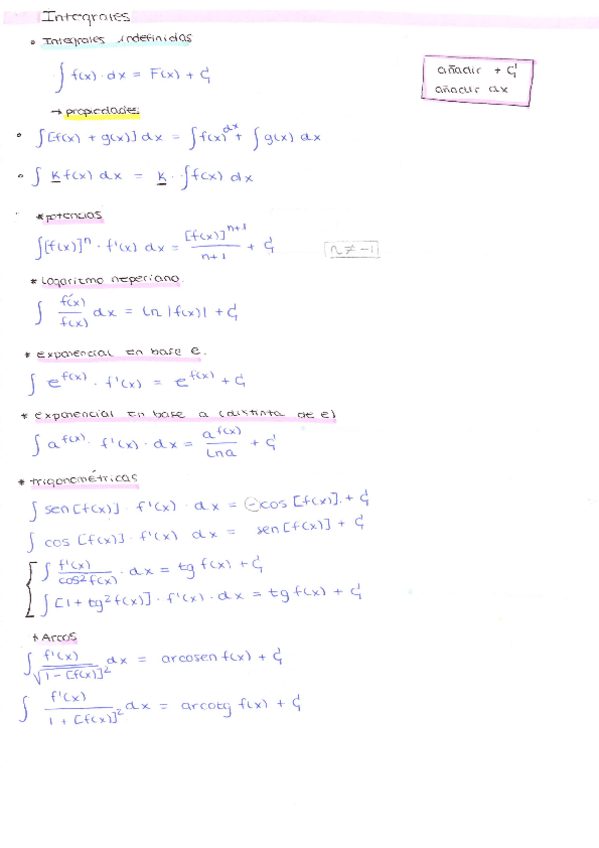 Integrales
• Integrales indefinidas
∫ f(x) · dx = F(x) + C
añadir + C
añadir dx
→ propiedades:
• ∫ [f(x) + g(x)] dx = ∫ f(x) dx + ∫ g(x) dx
• ∫ K f(x) dx = K · ∫ f(x) dx
* potencias
∫ [f(x)]ⁿ · f'(x) dx = [f(x)]ⁿ⁺¹ / n+1 + C n ≠ -1
* Logaritmo neperiano.
∫ f'(x) / f(x) dx = Ln |f(x)| + C
* exponencial en base e.
∫ e^f(x) · f'(x) = e^f(x) + C
* exponencial en base a (distinta de e)
∫ a^f(x) · f'(x) · dx = a^f(x) / Lna + C
* trigonométricas
∫ sen [f(x)] · f'(x) · dx = - cos [f(x)] · + C
∫ cos [f(x)] · f'(x) dx = sen [f(x)] + C
∫ f'(x) / cos² f(x) · dx = tg f(x) + C
∫ [1 + tg² f(x)] · f'(x) · dx = tg f(x) + C
* Arcos
∫ f'(x) / √1 - [f(x)]² dx = arcosen f(x) + C
∫ f'(x) / 1 + [f(x)]² dx = arcotg f(x) + C